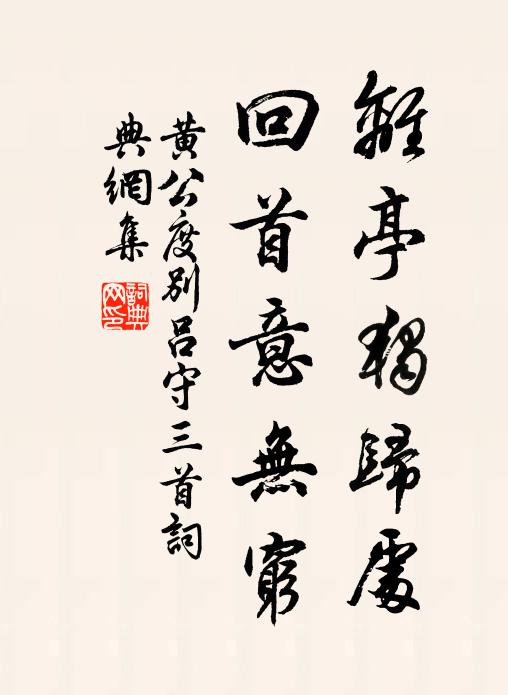 離亭獨歸處
回首意無窮
黃公度別呂守三首詞
典網集
詞典
网印